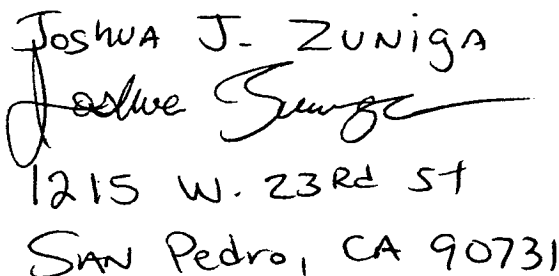 Joshua J. Zuniga
Joshua Zuniga
1215 W. 23rd St
San Pedro, CA 90731